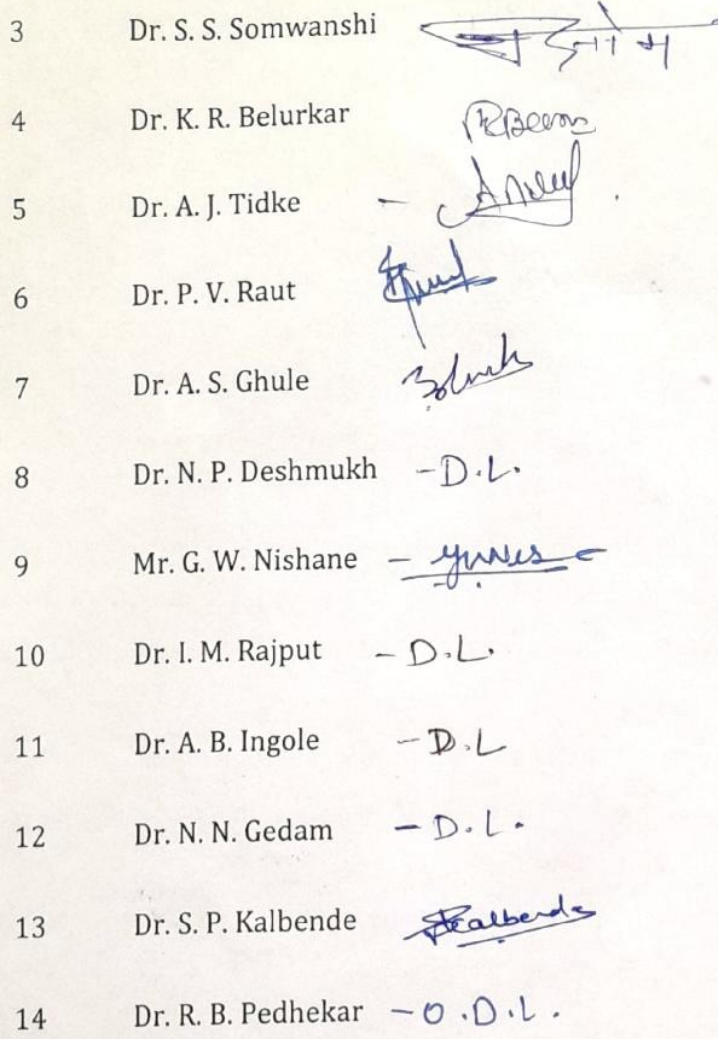 3 Dr. S. S. Somwanshi
4 Dr. K. R. Belurkar
5 Dr. A. J. Tidke -
6 Dr. P. V. Raut
7 Dr. A. S. Ghule
8 Dr. N. P. Deshmukh - D.L.
9 Mr. G. W. Nishane -
10 Dr. I. M. Rajput - D.L.
11 Dr. A. B. Ingole - D.L
12 Dr. N. N. Gedam - D.L.
13 Dr. S. P. Kalbende Kalbende
14 Dr. R. B. Pedhekar - O.D.L.